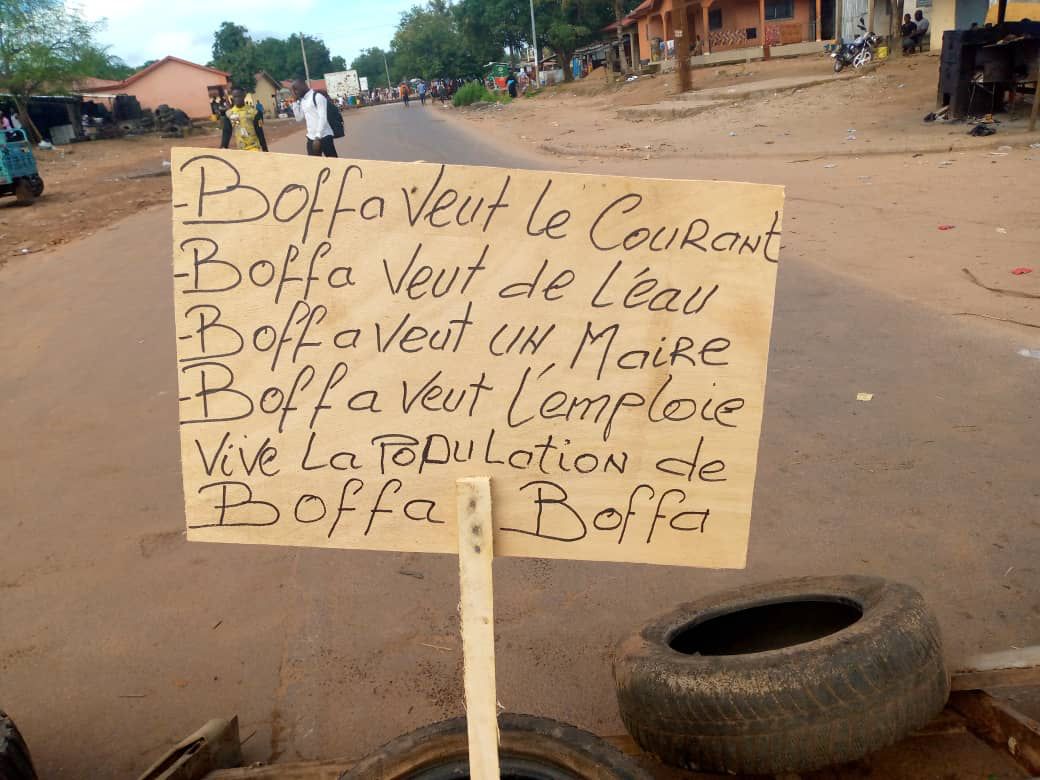 -Boffa Veut le Courant
-Boffa Veut de l'éau
-Boffa Veut un Maire
-Boffa Veut l'emploie
Vive La Population de
Boffa Boffa